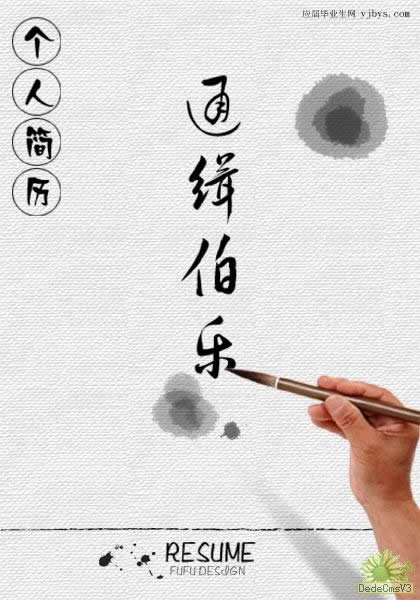 应届毕业生网 yjbys.com
个人简历
通缉伯乐
RESUME
FUFU DESIGN
DedeCmsV3